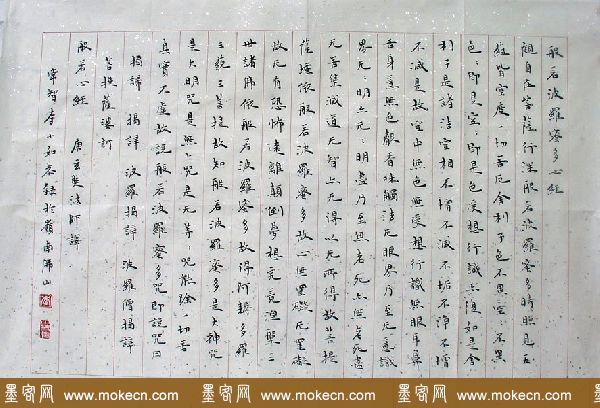 般若波羅蜜多心經
觀自在菩薩行深般若波羅蜜多時照見五
蘊皆空度一切苦厄舍利子色不異空〻不異
色〻即是空〻即是色受想行識亦復如是舍
利子是諸法空相不增不滅不垢不淨不增
不減是故空中無色無受想行識無眼耳鼻
舌身意無色聲香味觸法无眼界乃至无意識
界无〻明亦无〻明盡乃至無老死亦無老死盡
无苦集滅道无智亦无得以无所得故菩提
薩埵依般若波羅蜜多故心無罣礙无罣礙
故无有恐怖遠離顛倒夢想究竟涅槃三
世諸佛依般若波羅蜜多故得阿耨多羅
三藐三菩提故知般若波羅蜜多是大神咒
是大明咒是無上咒是无等〻咒能除一切苦
真實不虛故說般若波羅蜜多咒即說咒曰
揭諦 揭諦 波羅揭諦 波羅僧揭諦
菩提薩婆訶
般若心經 唐玄奘法師譯
李小如 於嶺南佛山
墨客网 www.mokecn.com 墨客网 www.mokecn.com 墨客网 www.mokecn.com